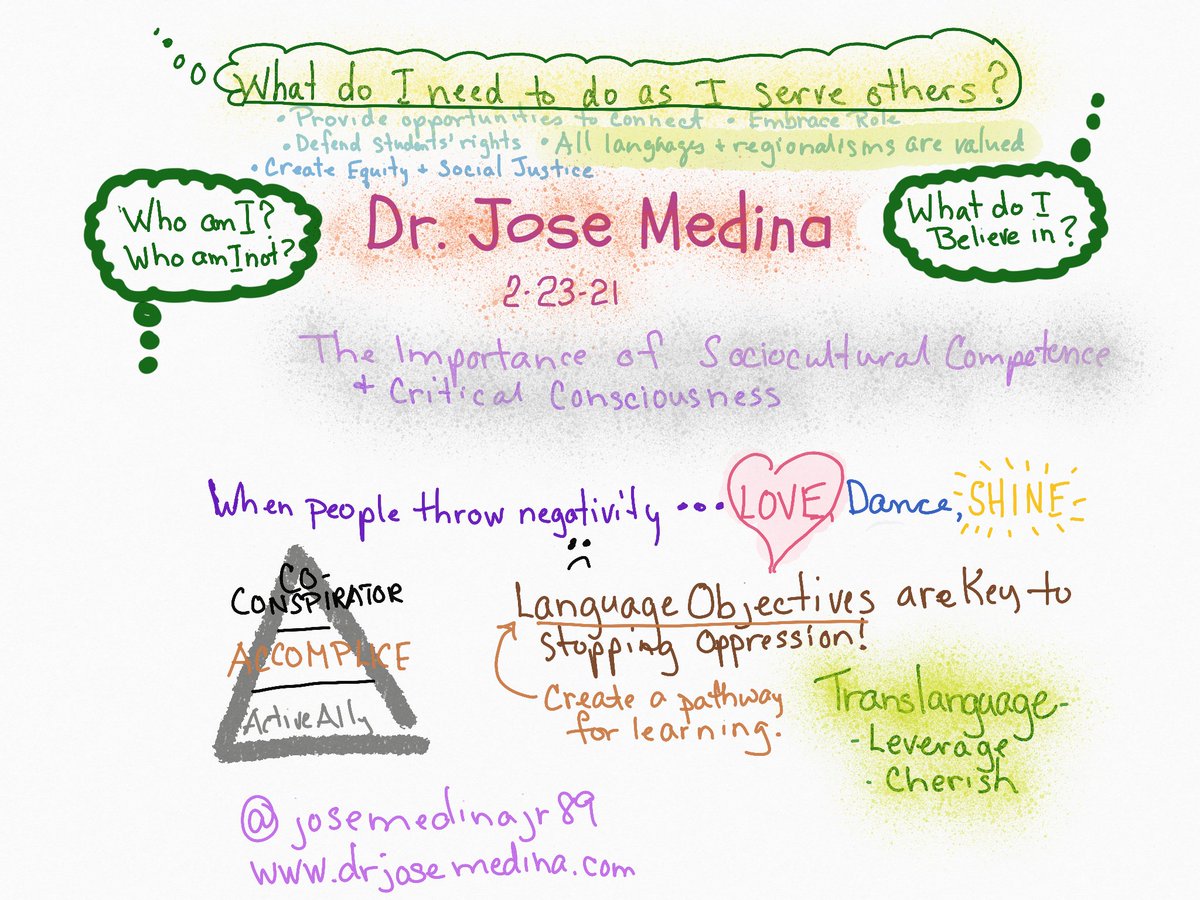 What do I need to do as I serve others?
• Provide opportunities to connect • Embrace Role
• Defend Students' rights • All languages + regionalisms are valued
• Create Equity + Social Justice
Who am I?
Who am I not?
Dr. Jose Medina
What do I
Believe in?
2-23-21
The Importance of Sociocultural Competence
+ Critical Consciousness
When people throw negativity ... LOVE, Dance, SHINE
CO-
CONSPIRATOR
ACCOMPLICE
Active Ally
Language Objectives are Key to
stopping oppression!
Create a pathway
for learning.
Translanguage-
- Leverage
- Cherish
@josemedinajr89
www.drjosemedina.com